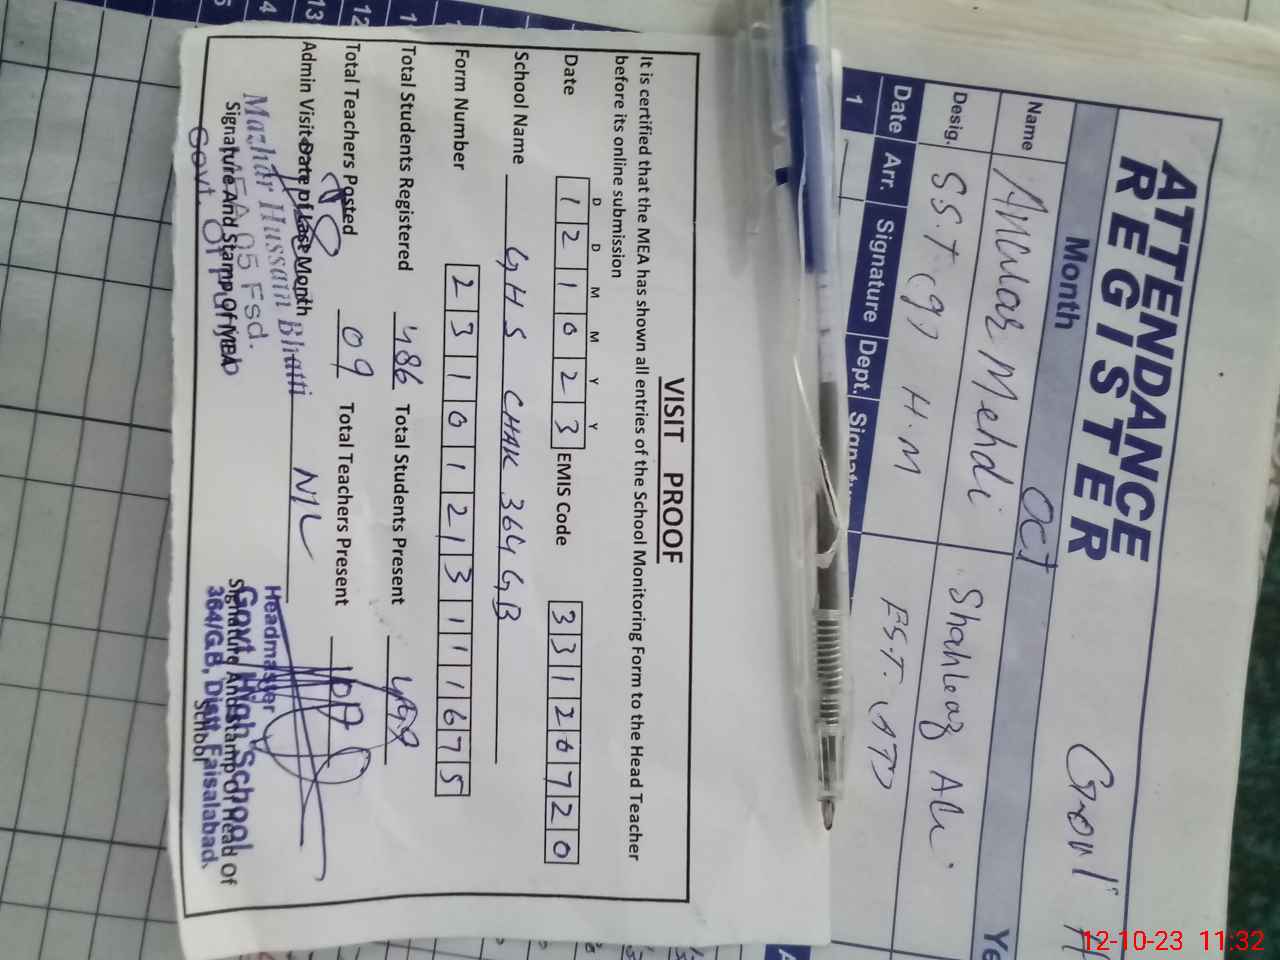 ATTENDANCE
REGISTER
Month Oct
Name Anwar Mehdi Shahbaz Ali
Desig. S.S.T (9) H.M E.S.T. (AT)
Date Arr. Signature Dept.
1
VISIT PROOF
It is certified that the MEA has shown all entries of the School Monitoring Form to the Head Teacher
before its online submission
D D M M Y Y
Date 1 2 1 0 2 3 EMIS Code 3 3 1 2 0 7 2 0
School Name GHS CHAK 364 GB
Form Number 2 3 1 0 1 2 1 3 1 1 1 6 7 5
Total Students Registered 486 Total Students Present
Total Teachers Posted 09 Total Teachers Present
Admin Visit Date of Last Month NIL
Mazhar Hussain Bhatti
Signature And Stamp Of MEA
MEA 05 Fsd.
Govt. Of Punjab
Headmaster
Signature And Stamp Of Head Of
School
Govt. High School
364/GB, Distt. Faisalabad.
11
12
13
4
5
12-10-23 11:32